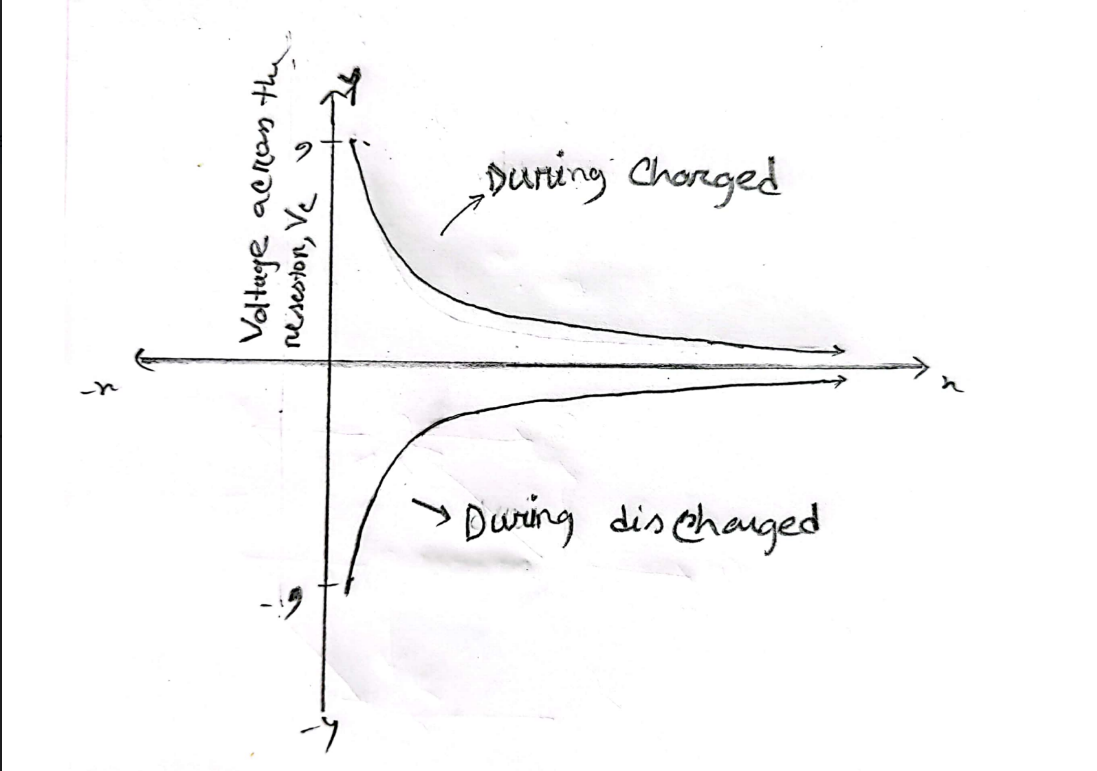 y
Voltage across the
resestor, Vc
9
During Charged
-x
x
During discharged
-9
-y